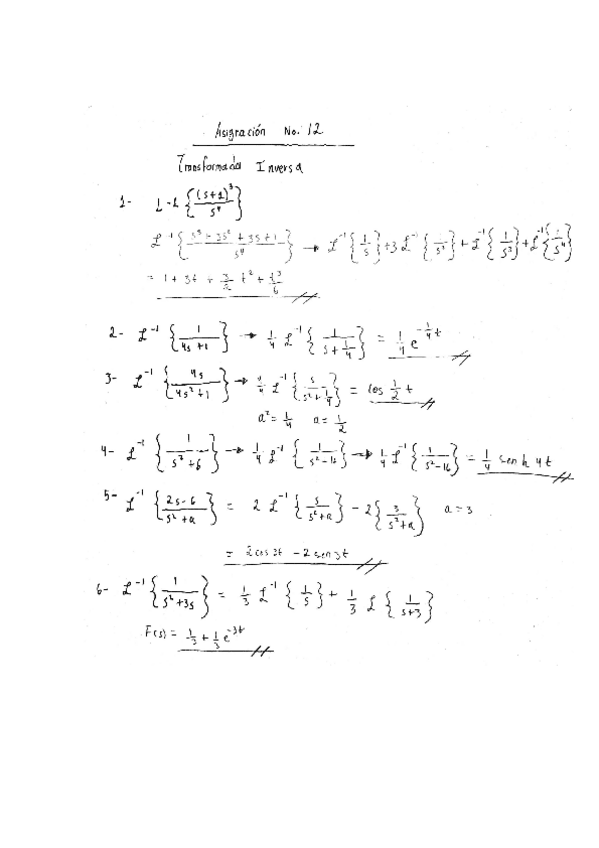 Asignación No. 12
Transformada Inversa
1- L-1 {(s+1)^3 / s^4}
L^-1 {s^3 + 3s^2 + 3s + 1 / s^4} → L^-1 {1/s} + 3 L^-1 {1/s^2} + L^-1 {1/s^3} + L^-1 {1/s^4}
= 1 + 3t + 3/2 t^2 + t^3/6
2- L^-1 {1 / 4s+1} → 1/4 L^-1 {1 / s + 1/4} = 1/4 e^-1/4 t
3- L^-1 {4s / 4s^2+1} → 4/4 L^-1 {s / s^2 + 1/4} = cos 1/2 t
a^2 = 1/4 a = 1/2
4- L^-1 {1 / s^2 + 6} → 1/4 L^-1 {1 / s^2 - 16} → 1/4 L^-1 {1 / s^2 - 16} = 1/4 senh 4t
5- L^-1 {2s - 6 / s^2 + a} = 2 L^-1 {s / s^2 + a} - 2 {3 / s^2 + a} a = 3
= 2 cos 3t - 2 sen 3t
6- L^-1 {1 / s^2 + 3s} = 1/3 L^-1 {1/s} + 1/3 L {1 / s+3}
F(s) = 1/3 + 1/3 e^-3t